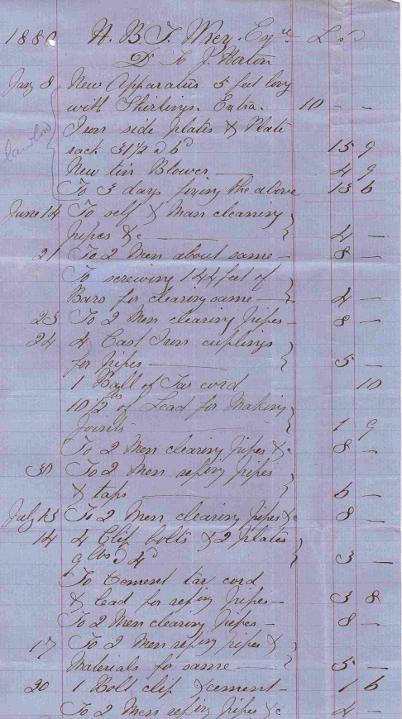 1880 H. B. T. Esqre L s d
Dr To J. Horton
Jany 8 New Apparatus 5 feet long
with Extra 10 - -
Iron side plates & Plate
rack 31½ a 6d 15 9
New tin Blower 4 9
To 3 days fixing the above 13 6
June 14 To self & Man cleaning
pipes &c 4 -
21 To 2 Men about same 8 -
To screwing 144 feet of
Bars for clearing same 4 -
23 To 2 Men clearing pipes 8 -
24 4 Cast Iron cuplings
for pipes 5 -
1 Ball of Tar cord 10
10½ lbs of Lead for Making
Joints 1 9
To 2 Men clearing pipes &c 8 -
30 To 2 Men refixing pipes
& taps 6 -
July 13 To 2 Men clearing pipes &c 8 -
14 4 Clip bolts & 2 plates
9 lbs a 4d 3 -
To Cement tar cord
& lead for refixing pipes 3 8
To 2 Men clearing pipes 8 -
17 To 2 Men refixing pipes &
Materials for same 5 -
20 1 Bolt clip & cement 1 6
To 2 Men refixing pipes &c 4 -